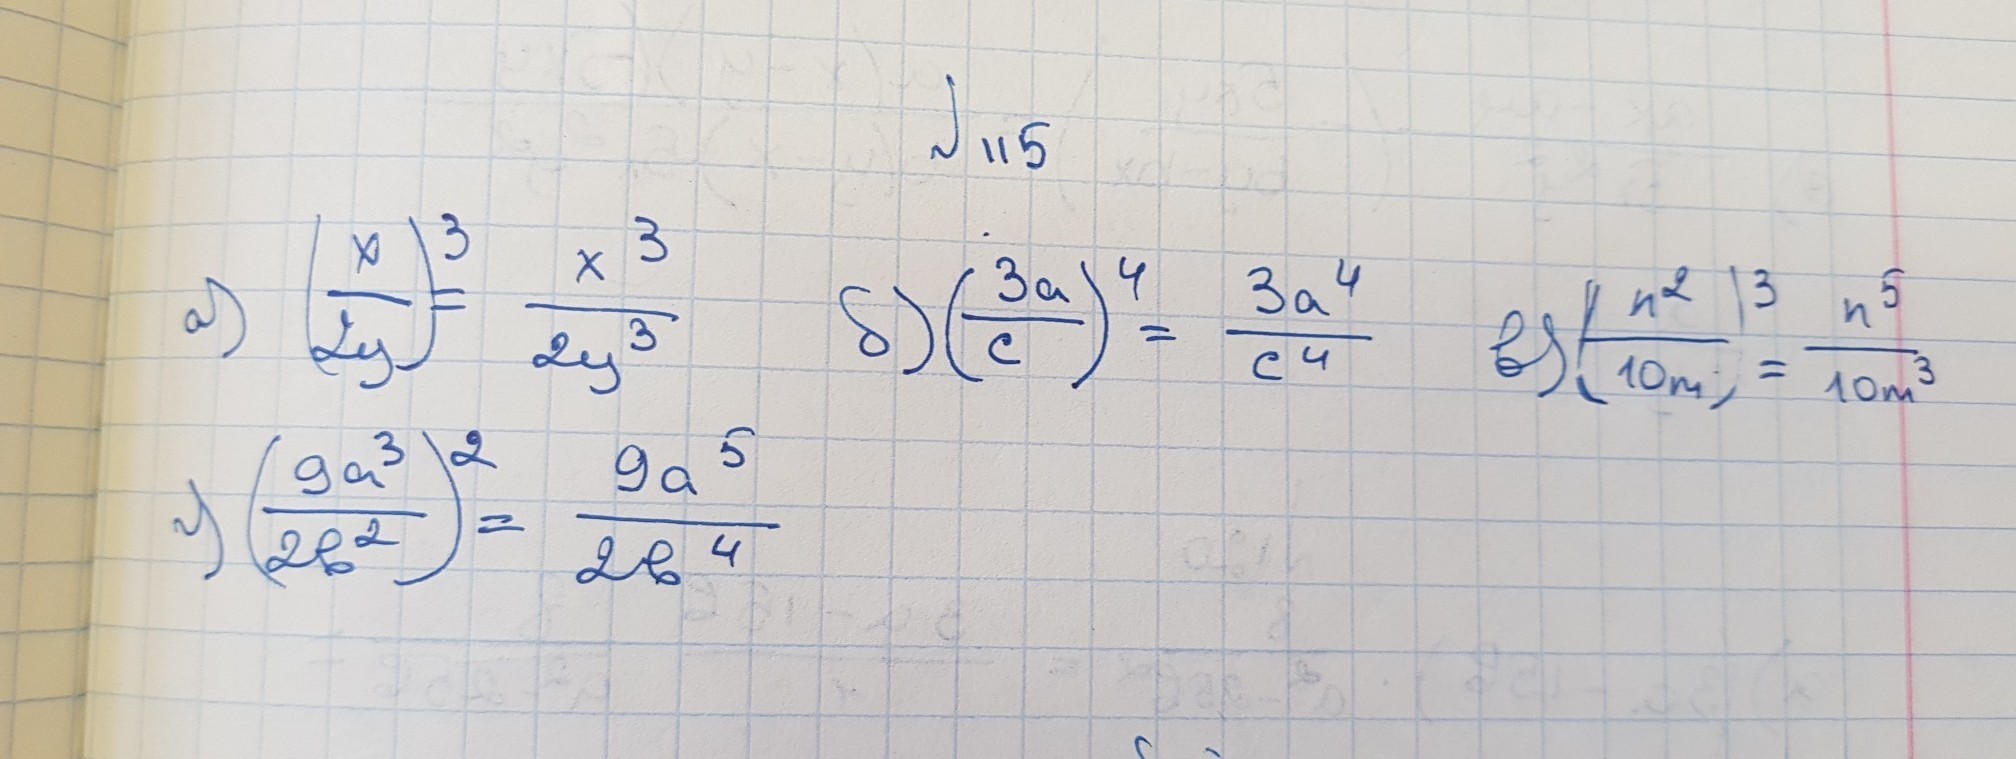 № 115
а) (x/2y)³ = x³/2y³ б) (3a/c)⁴ = 3a⁴/c⁴ в) (n²/10m)³ = n⁵/10m³
г) (9a³/2b²)² = 9a⁵/2b⁴